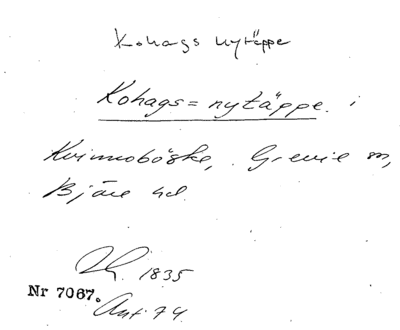 Kohags nytäppe
Kohags=nytäppe. i
Kvinnoböske, Grevie sn,
Bjäre hd.
1835
Nr 7067.
Ant. 74